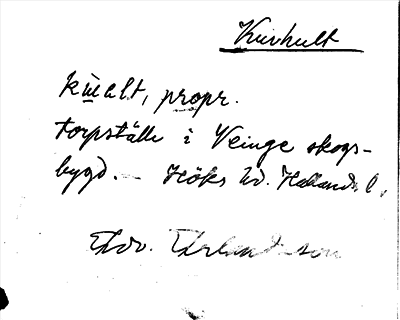 Kuvhult
ku̅valt, propr.
Torpställe i Veinge skogs-
bygd. – Höks hd. Hallands l.
Edv. Erlandsson